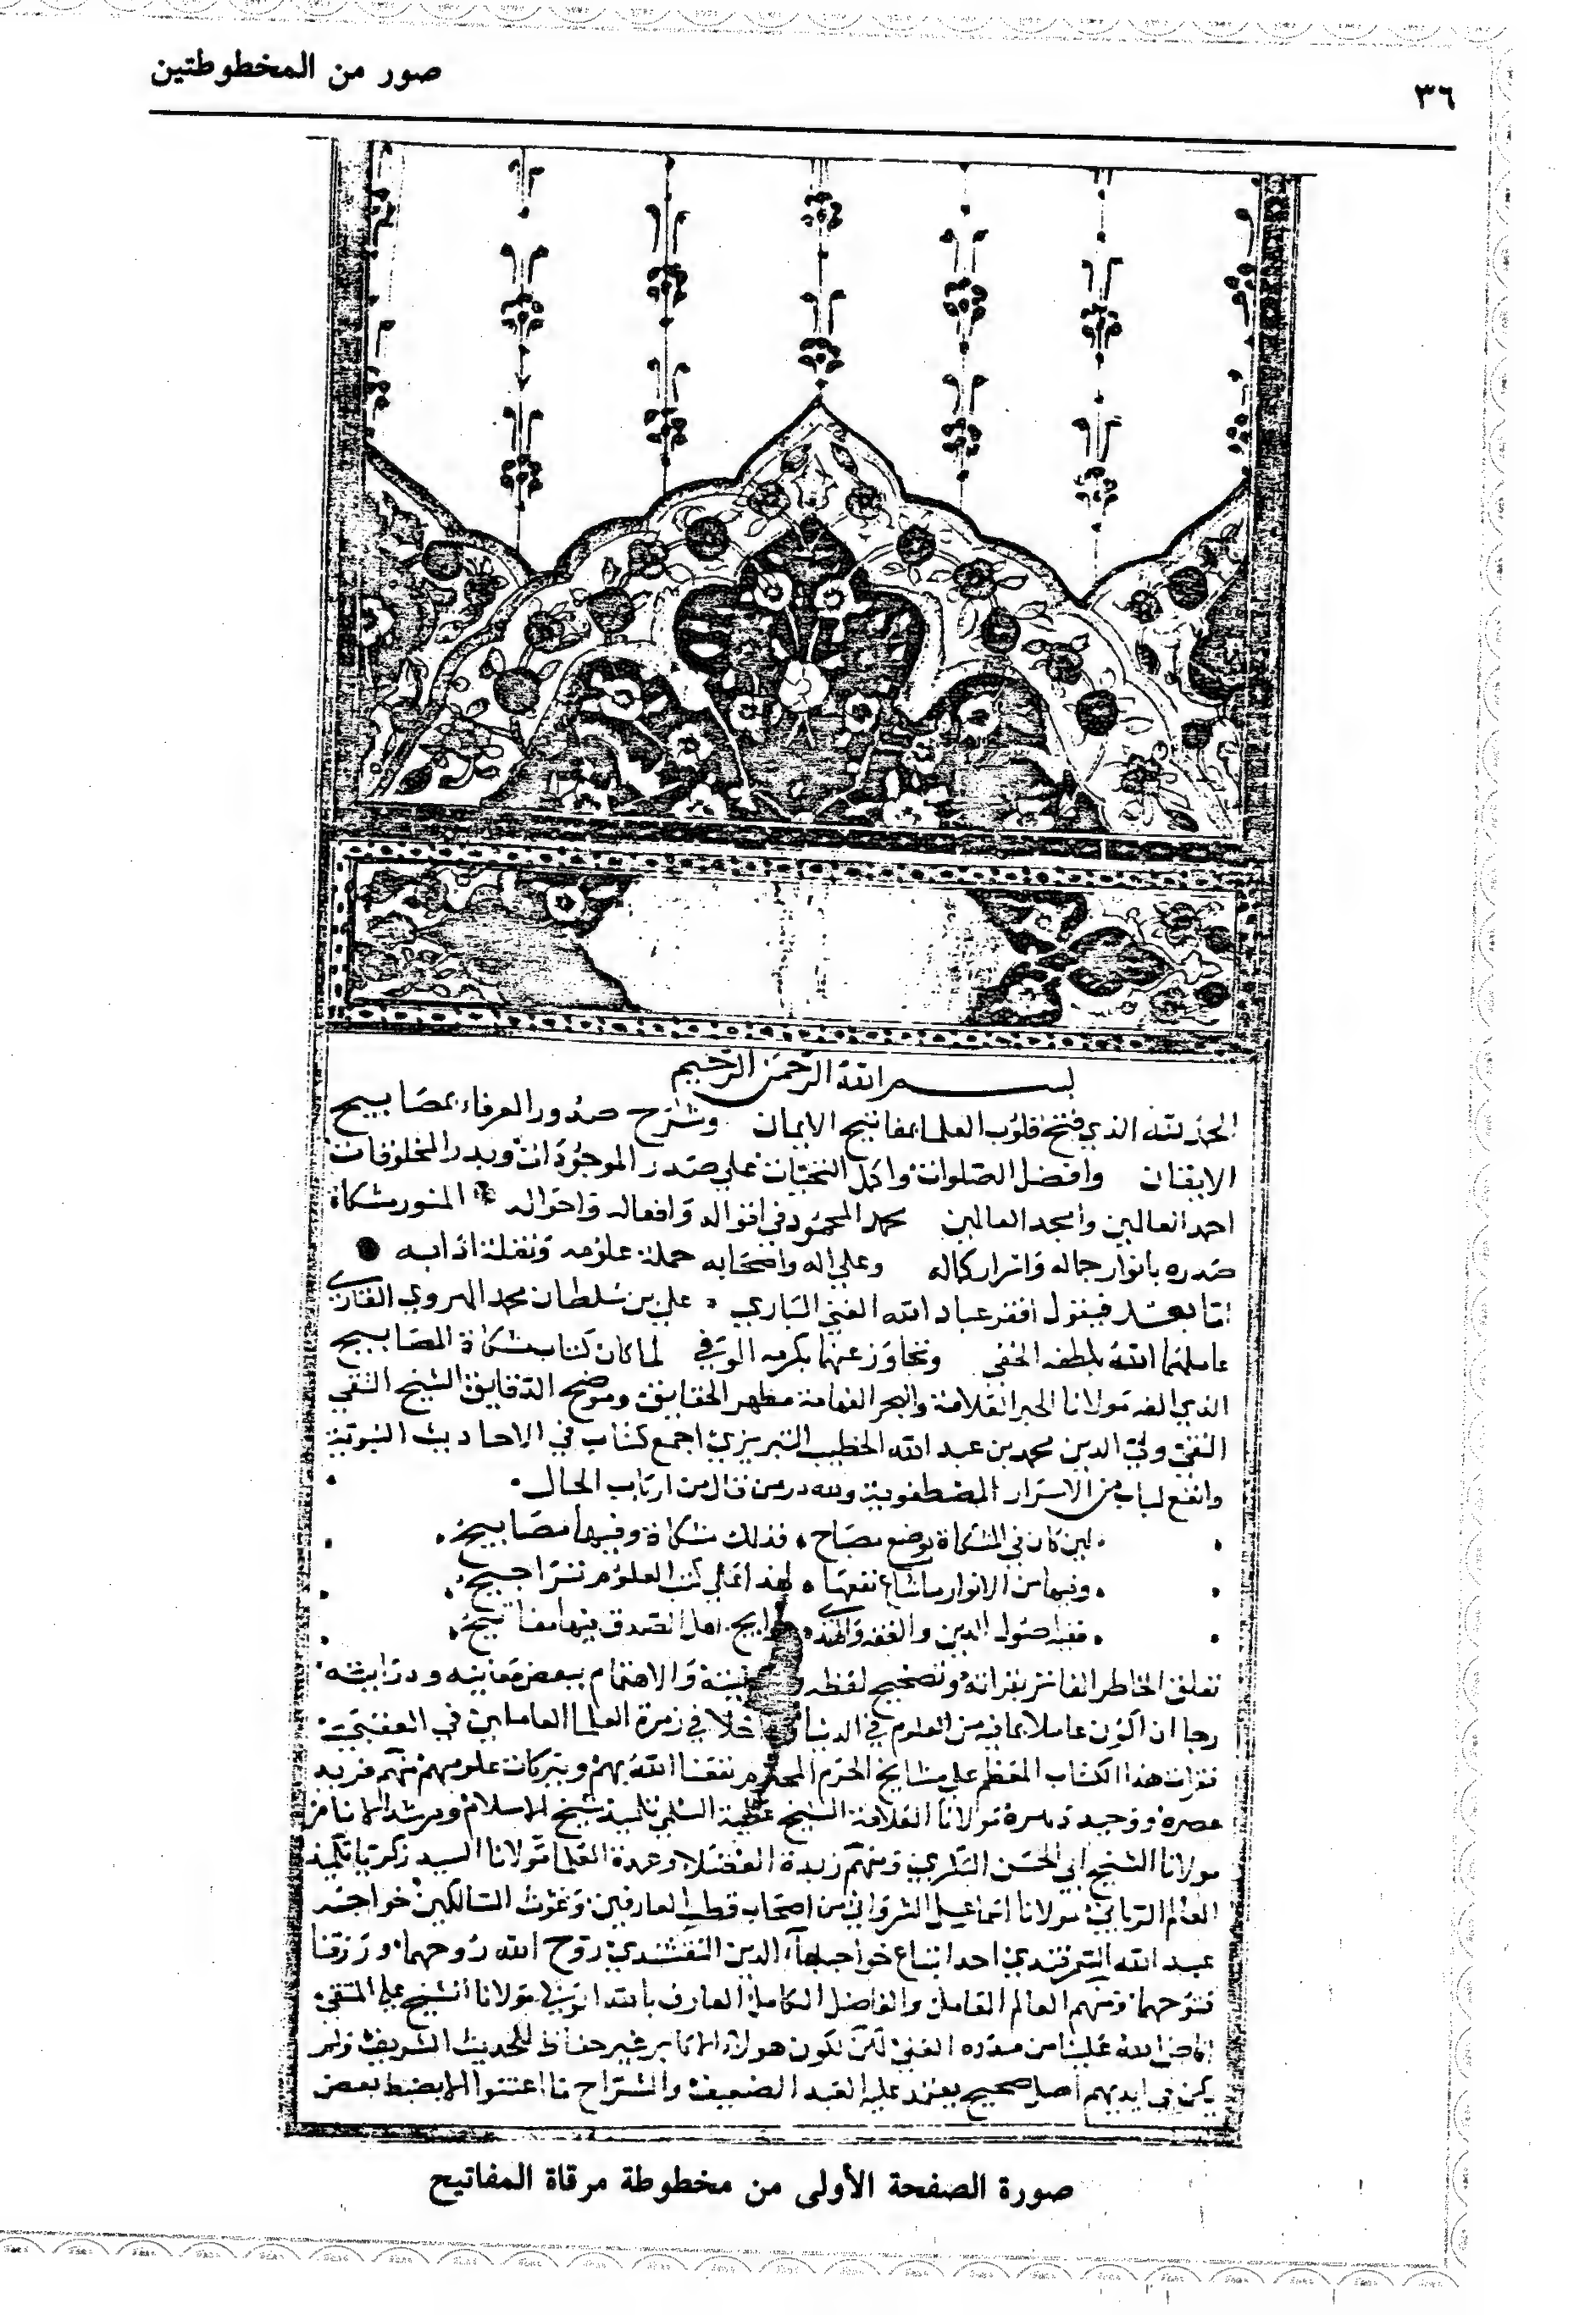 ٣٦
صور من المخطوطتين
بسم الله الرحمن الرحيم
الحمد لله الذي فتح قلوب العلما بمفاتيح الايمان وشرح صدور العرفاء بمصابيح
الايقان وافضل الصلوات واكمل التحيات علي صدر الموجودات وبدر المخلوقات
احمد العالمين وامجد العالمين محمد المحمود في اقواله وافعاله واحواله المنور مشكاة
صدره بانوار جماله واسرار كماله وعلي اله واصحابه حملة علومه ونقلة ادابه
اما بعد فيقول افقر عباد الله الغني الباري علي بن سلطان محمد الهروي القاري
عاملهما الله بلطفه الخفي وتجاوز عنهما بكرمه الوفي لما كان كتاب مشكاة المصابيح
الذي الفه مولانا الحبر العلامة والبحر الفهامة مظهر الحقايق وموضح الدقايق الشيخ التقي
النقي ولي الدين محمد بن عبد الله الخطيب التبريزي اجمع كتاب في الاحاديث النبوية
وانفع لباب من الاسرار المصطفوية ولله در من قال من ارباب الحال
لين كان في المشكاة يوضع مصباح فذلك مشكاة وفيها مصابيح
وفيها من الانوار ما شاع نفعها لهذا علي كتب العلوم تراجيح
ففيه اصول الدين والفقه والهدي حوايج اهل الصدق فيها مفاتيح
تعلق الخاطر الفاتر بقراته وتصحيح لفظه والاهتمام ببعض معانيه ودرايته
رجا ان اكون عاملا بما فيه من العلوم في الدنيا وداخلا في زمرة العلما العاملين في العقبي
فقرات هذا الكتاب المعظم علي مشايخ الحرم المحترم نفعنا الله بهم وببركات علومهم منهم فريد
عصره ووحيد دهره مولانا العلامة الشيخ عطية السلمي تلميذ شيخ الاسلام ومرشد الانام
مولانا الشيخ ابي الحسن البكري ومنهم زبدة الفضلا وعمدة العلما مولانا السيد زكريا تلميذ
العالم الرباني مولانا اسماعيل الشرواني من اصحاب قطب العارفين وغوث السالكين خواجه
عبيد الله السمرقندي احد اتباع خواجه بهاء الدين النقشبندي روح الله روحهما ورزقنا
فتوحهما ومنهم العالم العامل والفاضل الكامل العارف بالله الولي مولانا الشيخ علي المتقي
افاض الله علينا من مدده العلي لكن لكون هولاء الاكابر غير حفاظ للحديث الشريف ولم
يكن في ايديهم اصل صحيح يعتمد عليه العبد الضعيف والشراح ما اعتنوا الا بضبط بعض
صورة الصفحة الأولى من مخطوطة مرقاة المفاتيح